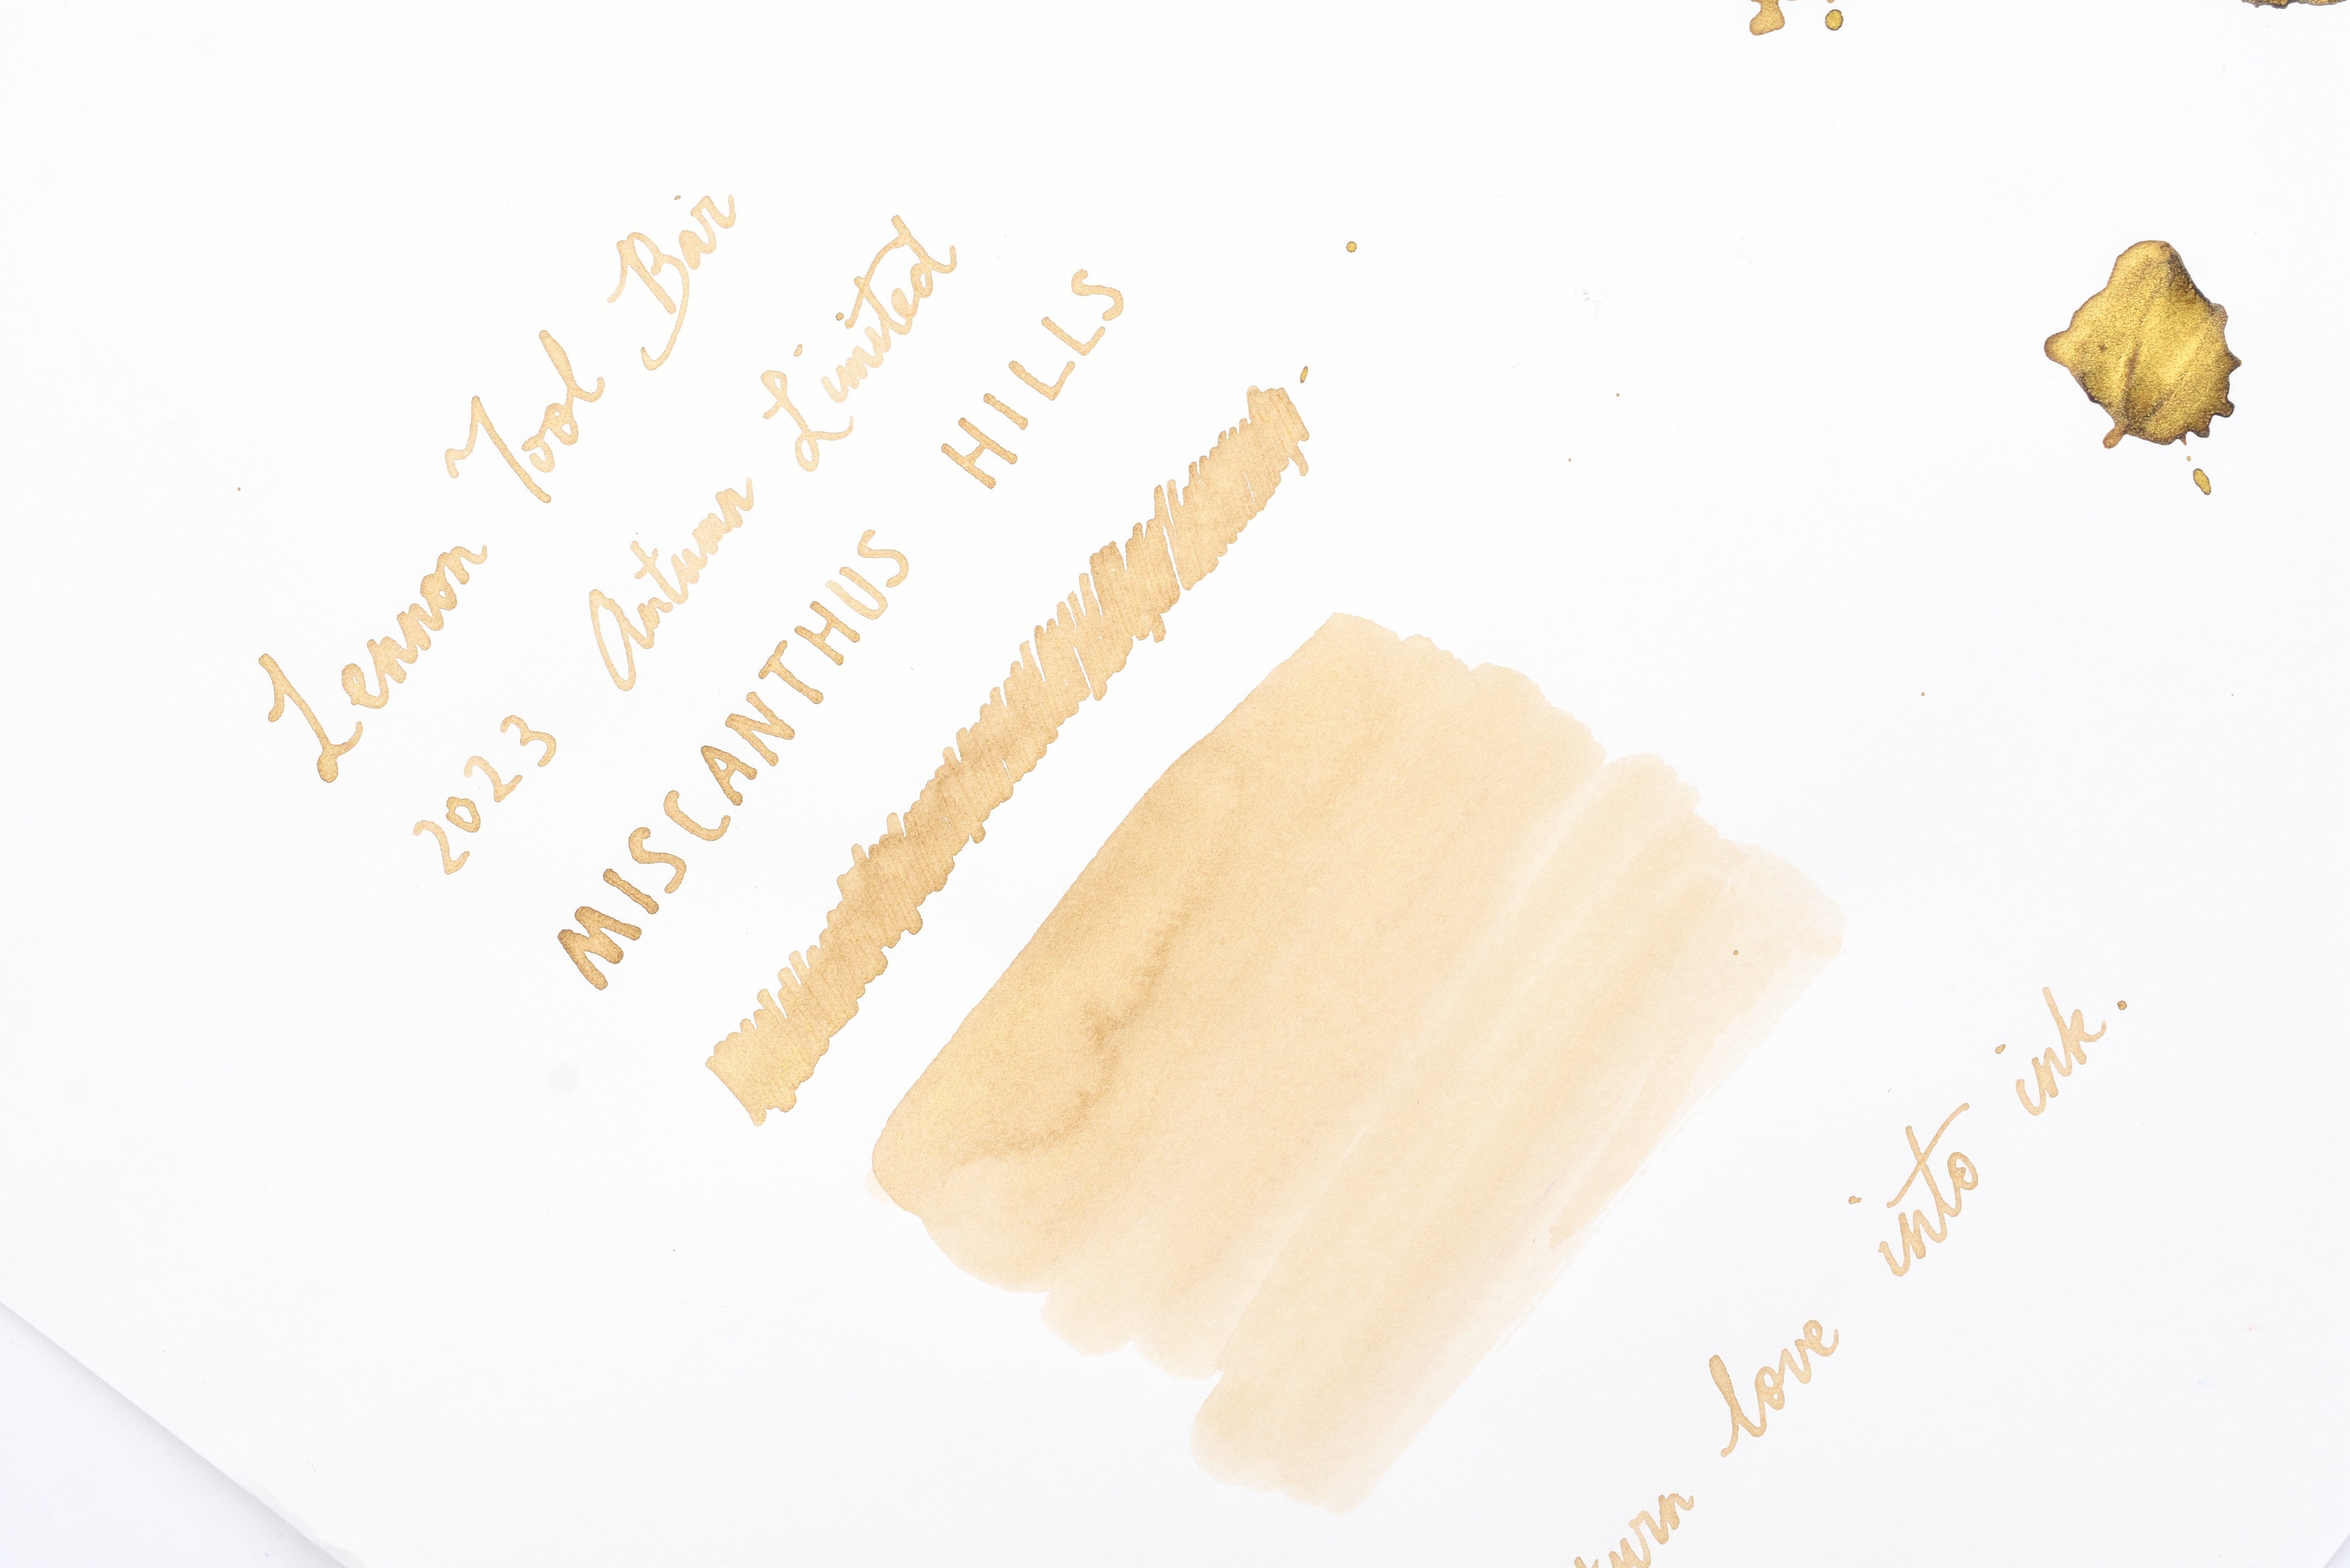 Lennon Tool Bar
2023 Autumn Limited
MISCANTHUS HILLS
love into ink.